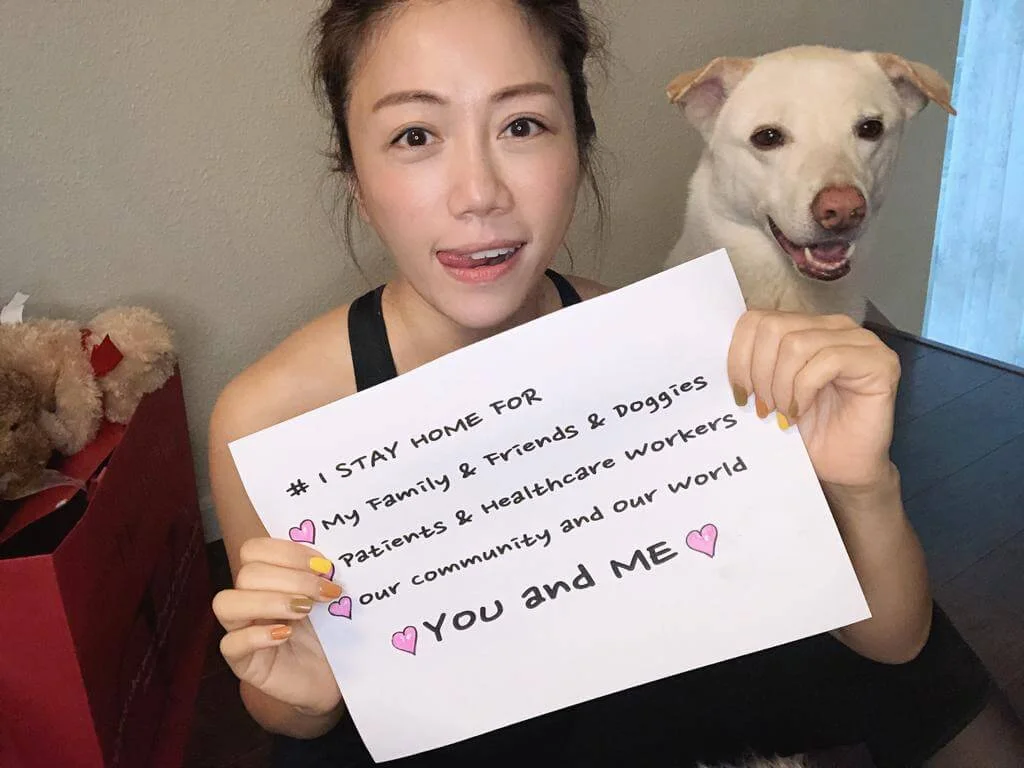 # I STAY HOME FOR
My Family & Friends & Doggies
Patients & Healthcare Workers
our community and our world
You and ME